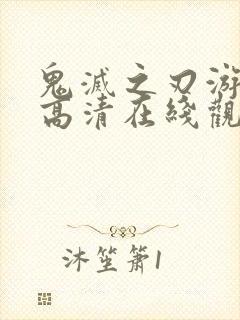 鬼滅之刃游
高清在綫觀
沐笙簫1